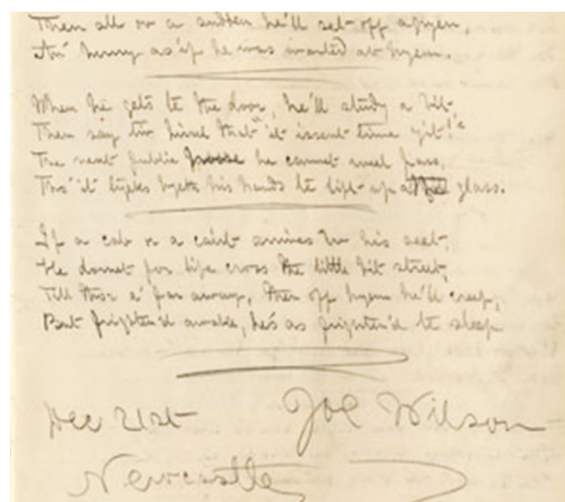 Then all on a sudden he'll set off agyen,
An' hurry as if he was wanted at hyem.
When he gets te the door, he'll study a bit
Then say tiv hissel that "it issent time yit!"
The next public hoose he cannot weel pass,
Tho' it tyeks byeth his hands te lift up a glass.
If a cab or a cairt comes in his seet,
He darnet for life cross the little bit street,
Till thor a' far away, then off hyem he'll creep,
But frighten'd awake, he's as frighten'd te sleep
Dec 21st Joe Wilson
Newcastle